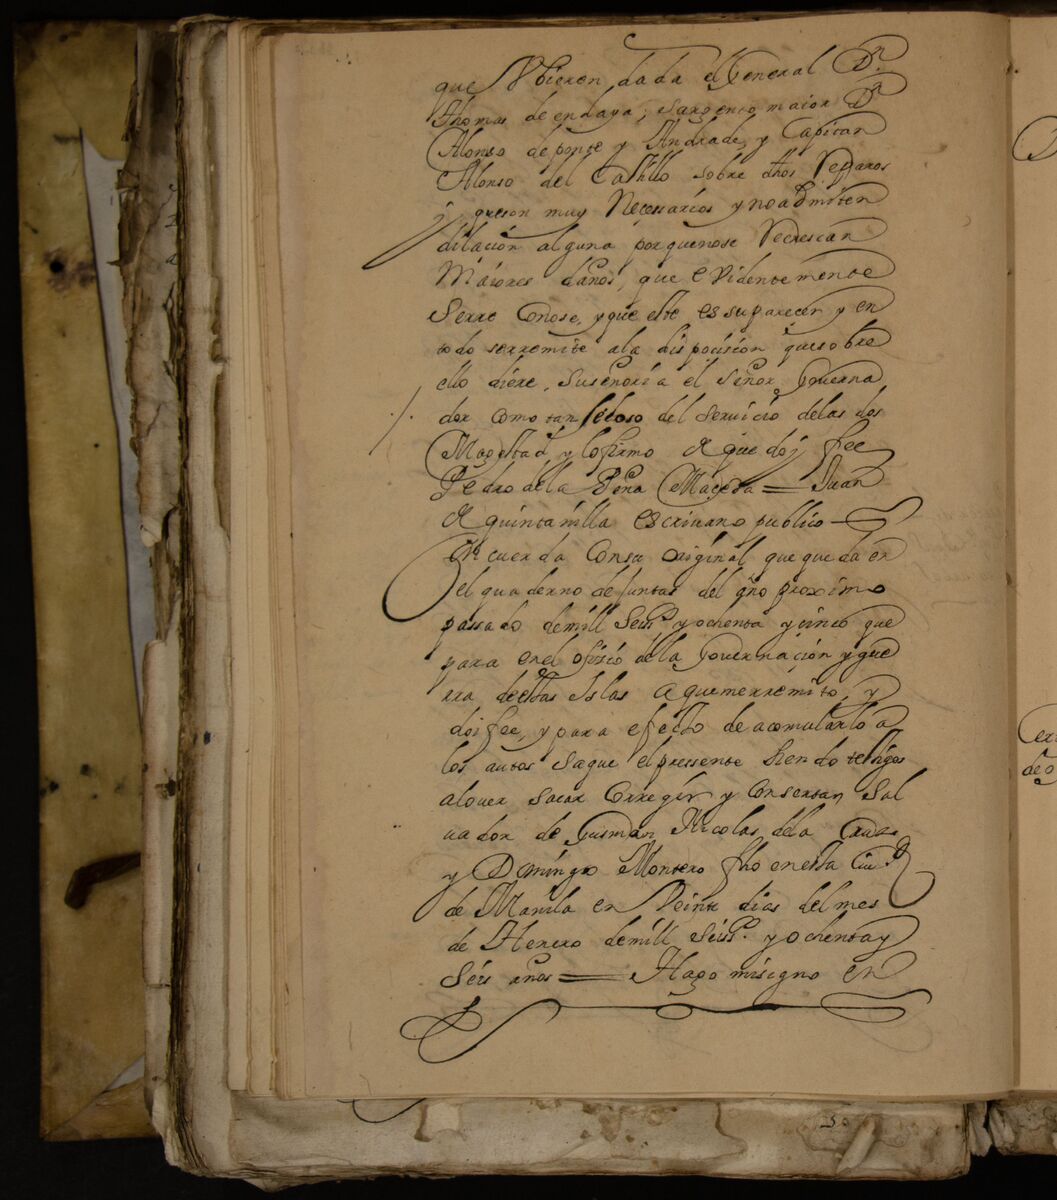 que Vbieren dada el General Dn.
thomas de endaya; sargento maior Dn
Alonso deponte y Andrade, y Capitan
Alonso del Castillo sobre dhos Reparos
y queson muy Necessarios ynoadmiten
dilacion alguna porquenose Recrescan
Maiores daños, que eVidentemente
Serre Conose, yque este essuparecer y en
todo serremite ala disposicion quesobre
ello diere, suseñoria el señor Governa
dor como tan seloso del servicio delas dos
Magestad, y lofirmo de que doy fee
Pedro dela Peña = Juan
de quintanilla escrivano publico
Concuerda Consu original que queda en
el quaderno dejuntas del año proximo
passado demill Seiss. yochenta ycinco que
para enel ofizio dela Governacion ygue
rra destas Islas aquemerremito, y
doifee, y para efecto de acomularlo a
los autos saque elpressente siendo testigos
alover sacar Corregir y Consertar Sal
uador de Gusman Nicolas dela Cruz
y Domingo Montero fho enesta Ciud
de Manila en Veinte dias delmes
de Henero demill Seiss. yochentay
Seis años = Hago misigno en